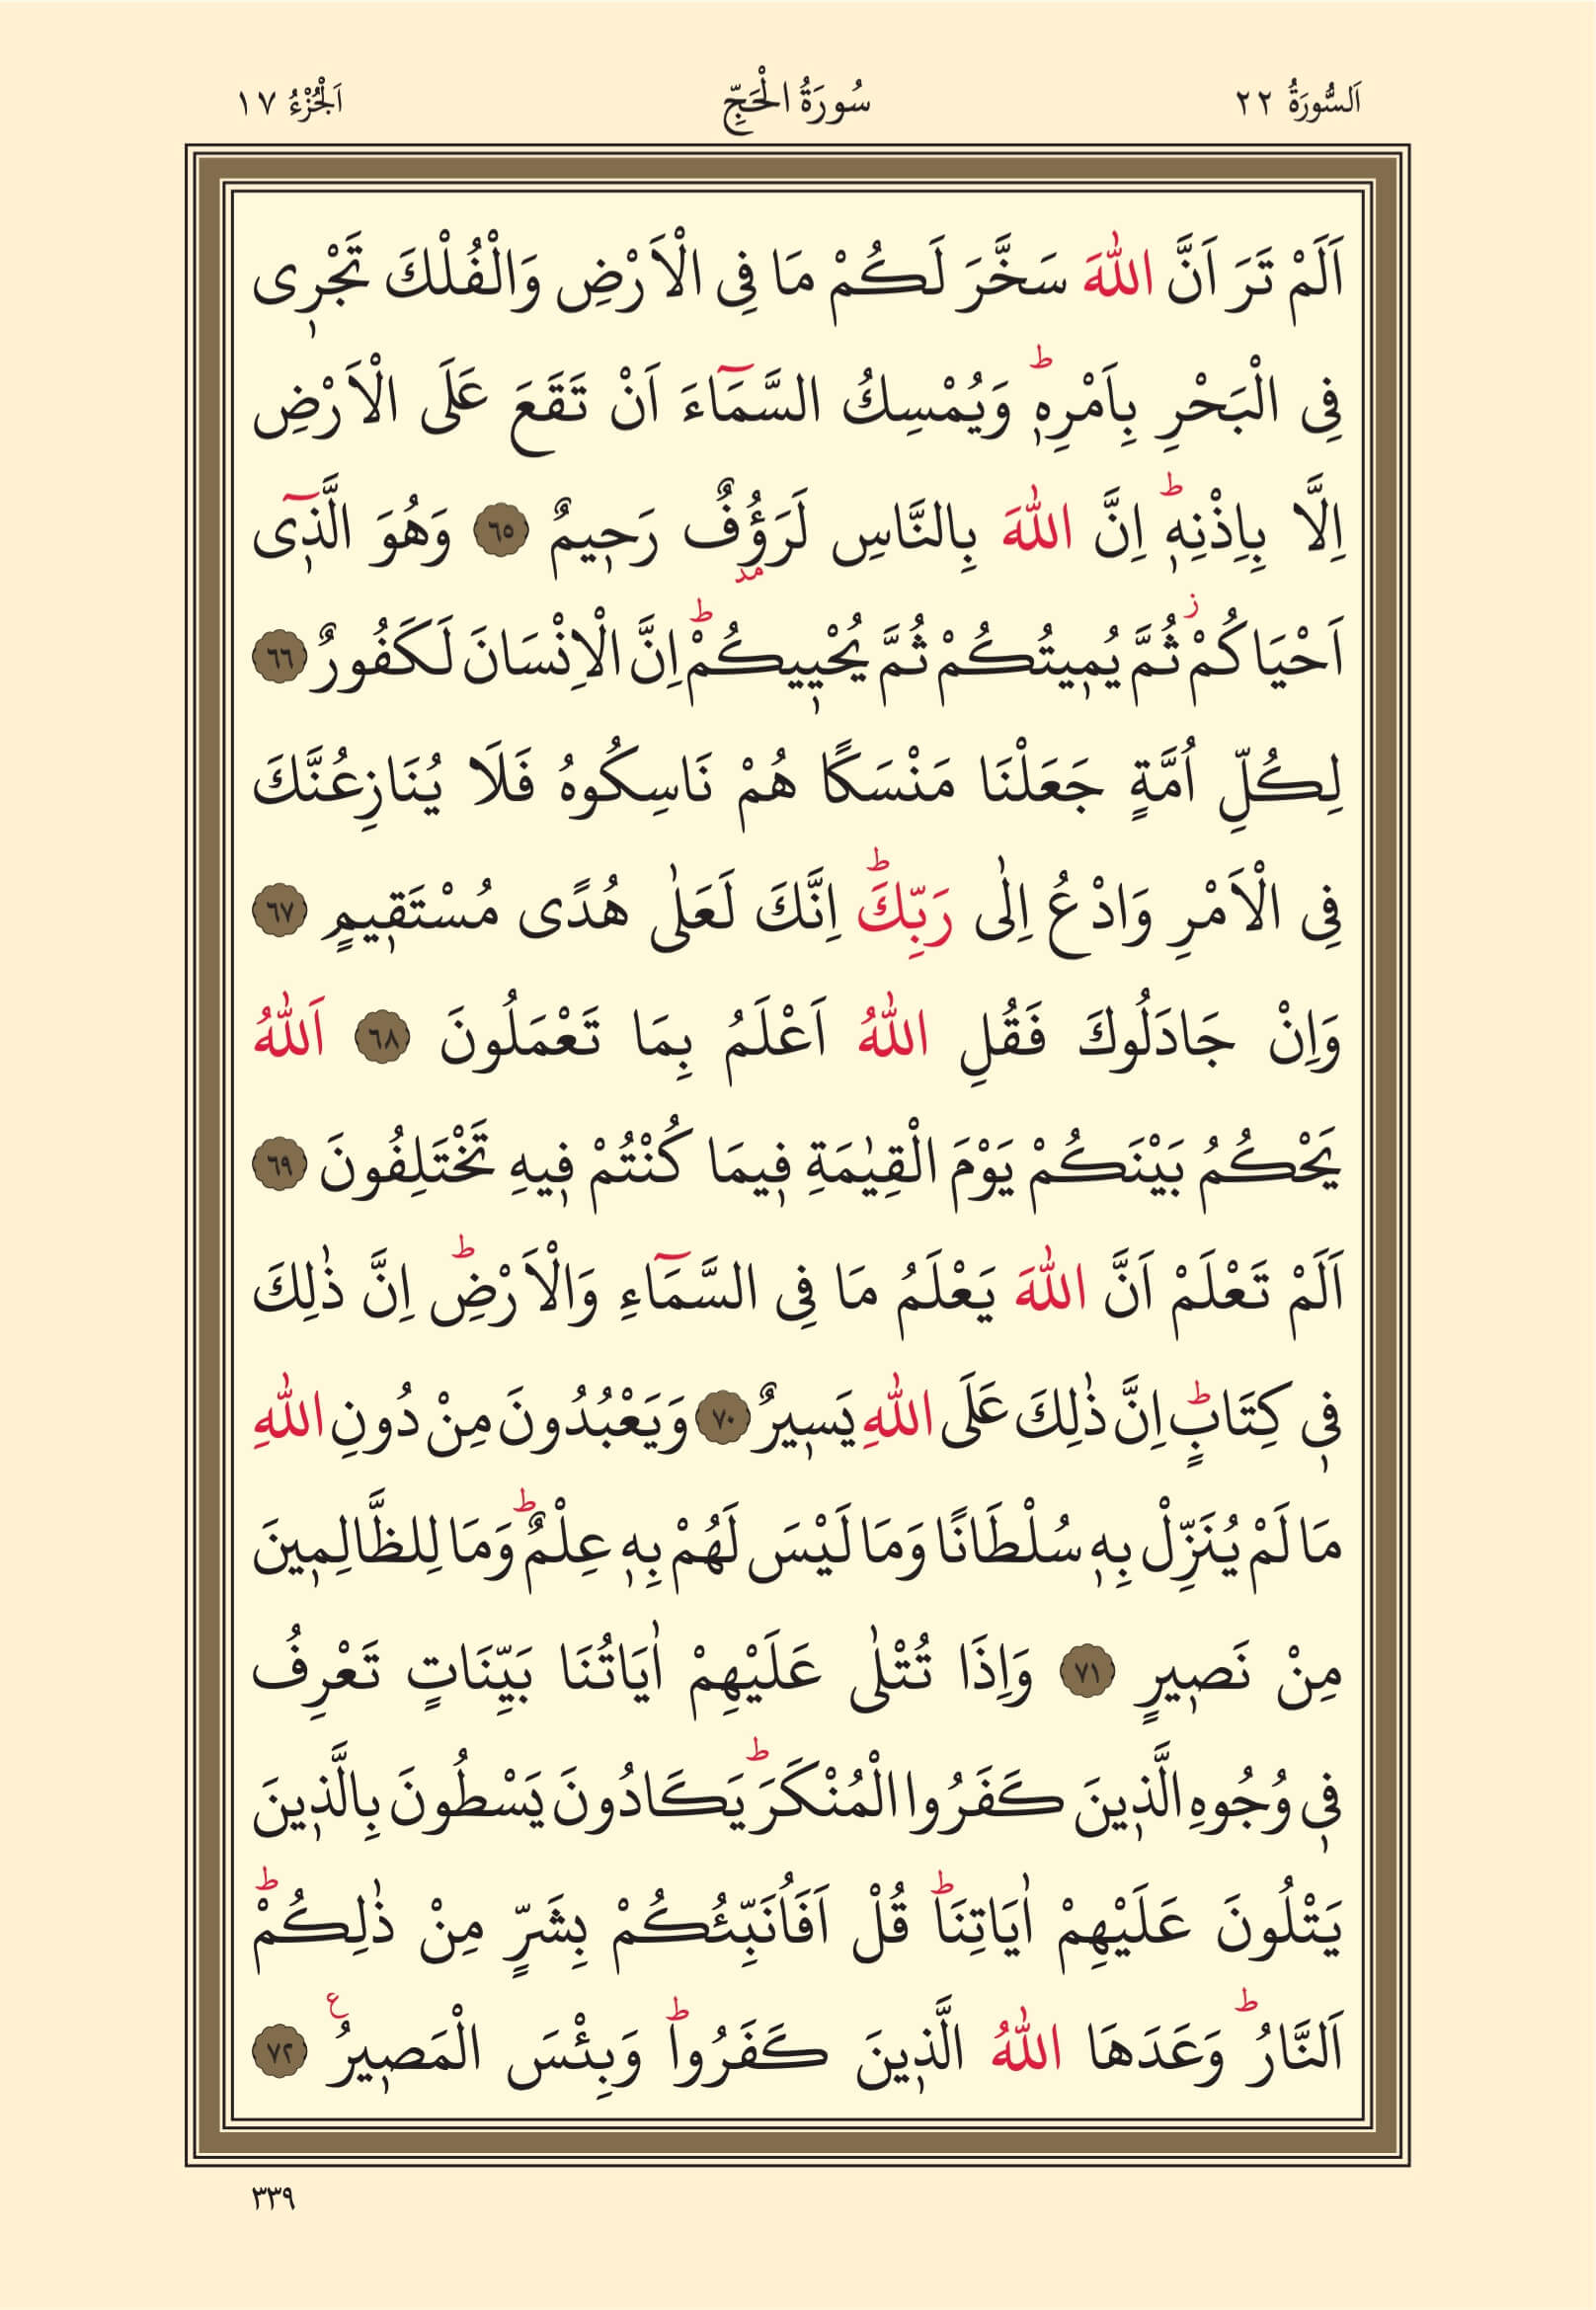 اَلسُّورَةُ ٢٢ سُورَةُ الْحَجِّ اَلْجُزْءُ ١٧
اَلَمْ تَرَ اَنَّ اللّٰهَ سَخَّرَ لَكُمْ مَا فِى الْاَرْضِ وَالْفُلْكَ تَجْرٖى
فِى الْبَحْرِ بِاَمْرِهٖؕ وَيُمْسِكُ السَّمَٓاءَ اَنْ تَقَعَ عَلَى الْاَرْضِ
اِلَّا بِاِذْنِهٖؕ اِنَّ اللّٰهَ بِالنَّاسِ لَرَؤُفٌ رَحٖيمٌ ٦٥ وَهُوَ الَّذٖٓى
اَحْيَاكُمْؗ ثُمَّ يُمٖيتُكُمْ ثُمَّ يُحْيٖيكُمْؕ اِنَّ الْاِنْسَانَ لَكَفُورٌ ٦٦
لِكُلِّ اُمَّةٍ جَعَلْنَا مَنْسَكًا هُمْ نَاسِكُوهُ فَلَا يُنَازِعُنَّكَ
فِى الْاَمْرِ وَادْعُ اِلٰى رَبِّكَؕ اِنَّكَ لَعَلٰى هُدًى مُسْتَقٖيمٍ ٦٧
وَاِنْ جَادَلُوكَ فَقُلِ اللّٰهُ اَعْلَمُ بِمَا تَعْمَلُونَ ٦٨ اَللّٰهُ
يَحْكُمُ بَيْنَكُمْ يَوْمَ الْقِيٰمَةِ فٖيمَا كُنْتُمْ فٖيهِ تَخْتَلِفُونَ ٦٩
اَلَمْ تَعْلَمْ اَنَّ اللّٰهَ يَعْلَمُ مَا فِى السَّمَٓاءِ وَالْاَرْضِؕ اِنَّ ذٰلِكَ
فٖى كِتَابٍؕ اِنَّ ذٰلِكَ عَلَى اللّٰهِ يَسٖيرٌ ٧٠ وَيَعْبُدُونَ مِنْ دُونِ اللّٰهِ
مَا لَمْ يُنَزِّلْ بِهٖ سُلْطَانًا وَمَا لَيْسَ لَهُمْ بِهٖ عِلْمٌؕ وَمَا لِلظَّالِمٖينَ
مِنْ نَصٖيرٍ ٧١ وَاِذَا تُتْلٰى عَلَيْهِمْ اٰيَاتُنَا بَيِّنَاتٍ تَعْرِفُ
فٖى وُجُوهِ الَّذٖينَ كَفَرُوا الْمُنْكَرَؕ يَكَادُونَ يَسْطُونَ بِالَّذٖينَ
يَتْلُونَ عَلَيْهِمْ اٰيَاتِنَاؕ قُلْ اَفَاُنَبِّئُكُمْ بِشَرٍّ مِنْ ذٰلِكُمْؕ
اَلنَّارُؕ وَعَدَهَا اللّٰهُ الَّذٖينَ كَفَرُواؕ وَبِئْسَ الْمَصٖيرُ ٧٢
٣٣٩